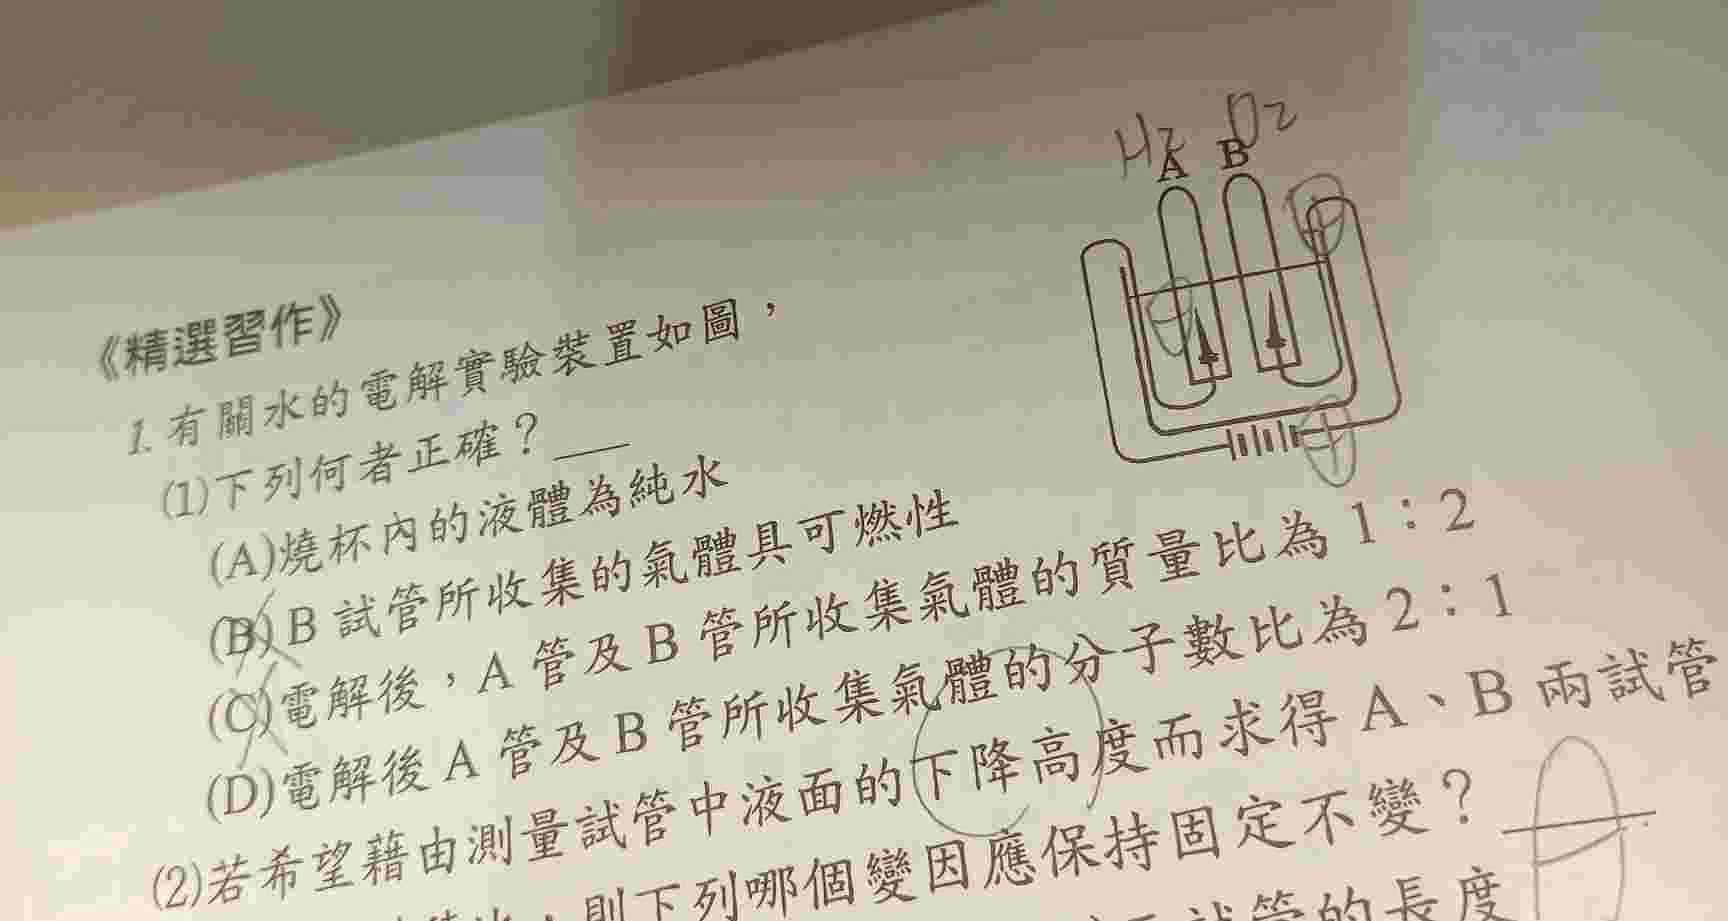 H2 O2
A B
《精選習作》
1. 有關水的電解實驗裝置如圖，
(1)下列何者正確？___
(A)燒杯內的液體為純水
(B) B 試管所收集的氣體具可燃性
(C)電解後，A 管及 B 管所收集氣體的質量比為 1：2
(D)電解後 A 管及 B 管所收集氣體的分子數比為 2：1
(2)若希望藉由測量試管中液面的下降高度而求得 A、B 兩試管
，則下列哪個變因應保持固定不變？
試管的長度